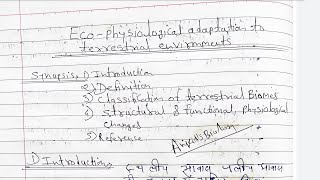 Eco-physiological adaptation to
terrestrial environments
Synopsis, 1) Introduction
2) Definition
3) Classification of terrestrial Biomes
4) Structural & functional, physiological
changes
5) Reference
Ankit's Biology
1) Introduction: